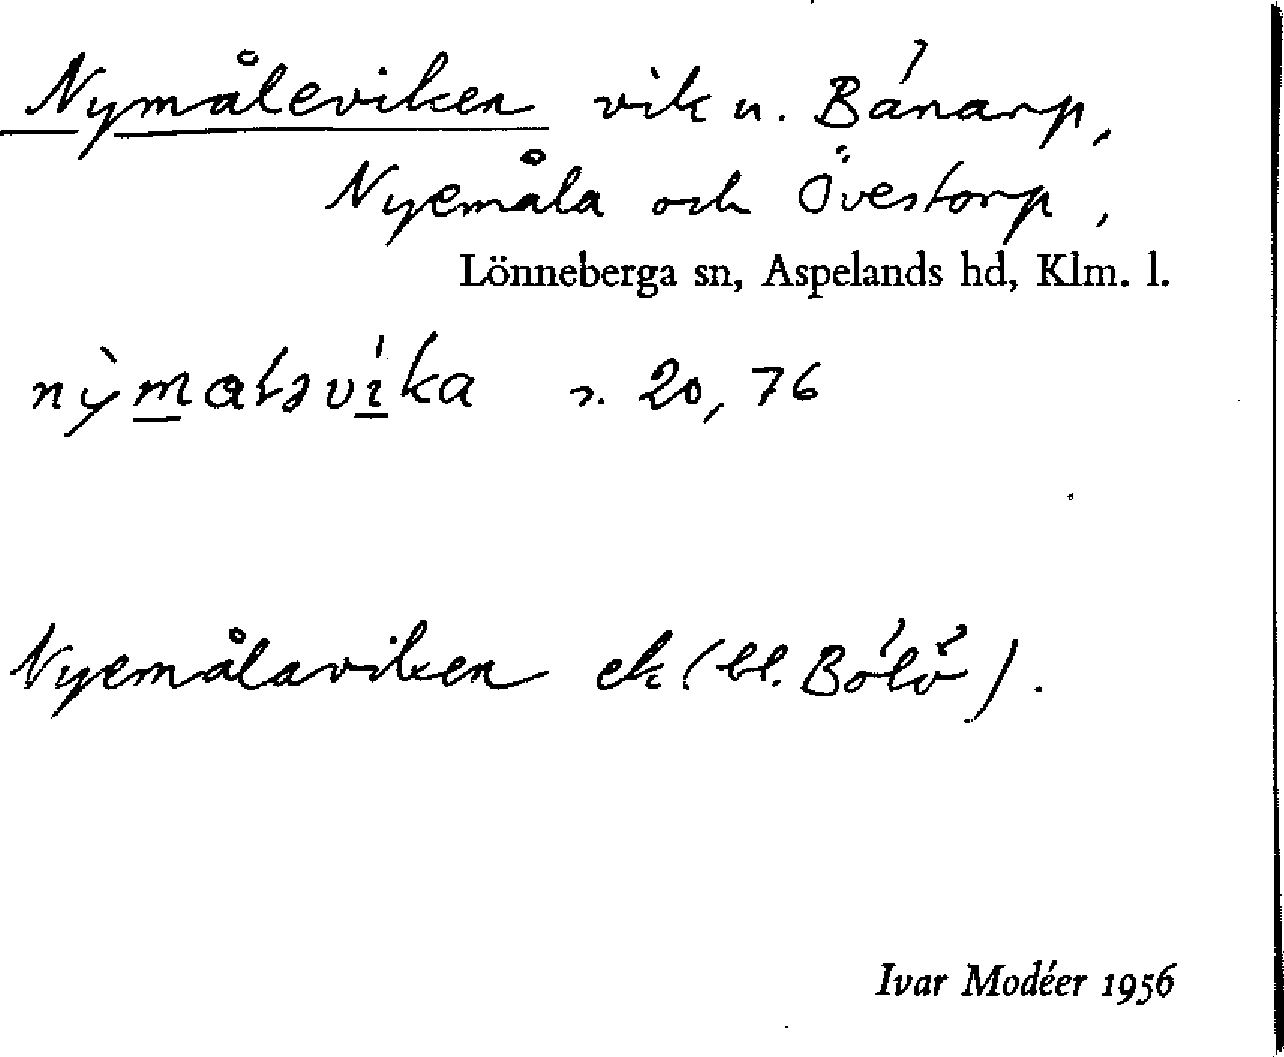 Nymåleviken vik u. Bánarp,
Nyemåla och Övestorp,
Lönneberga sn, Aspelands hd, Klm. l.
s. 20, 76
Nyemålaviken ek (bl.
Ivar Modéer 1956